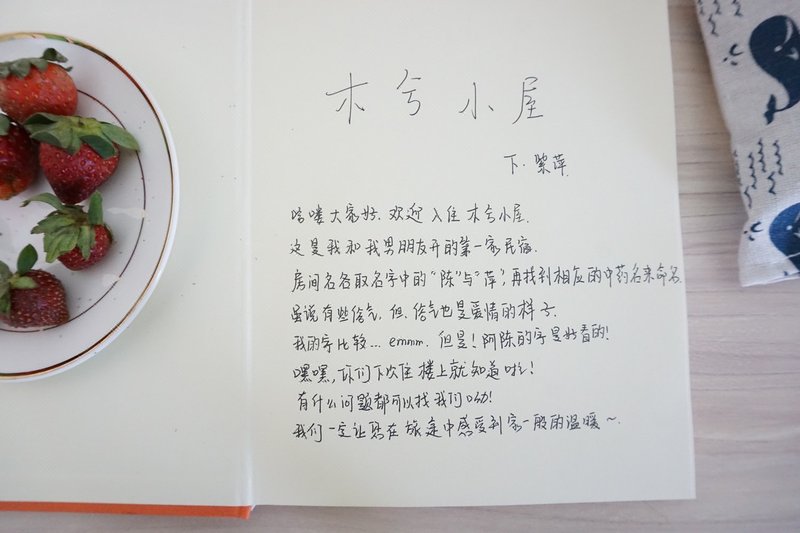 木兮小屋
下·紫萍
哈喽大家好.欢迎入住木兮小屋.
这是我和我男朋友开的第一家民宿.
房间名各取名字中的"陈"与"萍",再找到相应的中药名来命名.
虽说有些俗气,但.俗气也是爱情的样子.
我的字比较...emmm.但是!阿陈的字是好看的!
嘿嘿,你们下次住楼上就知道啦!
有什么问题都可以找我们呦!
我们一定让您在旅途中感受到家一般的温暖~